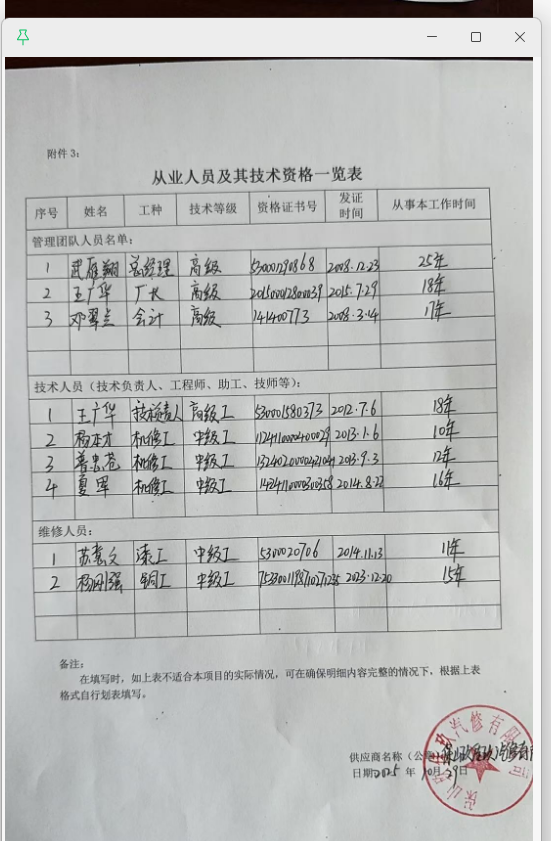 附件3：
从业人员及其技术资格一览表
序号 姓名 工种 技术等级 资格证书号 发证时间 从事本工作时间
管理团队人员名单：
1 武雁翔 总经理 高级 2008.12.23 25年
2 王广华 厂长 高级 2015.7.29 18年
3 邓翠兰 会计 高级 141400773 2008.3.14 17年
技术人员（技术负责人、工程师、助工、技师等）：
1 王广华 技术负责人 高级工 53001580373 2012.7.6 18年
2 杨本才 机修工 中级工 2013.1.6 10年
3 普忠苍 机修工 中级工 2013.9.3 12年
4 夏军 机修工 中级工 2014.8.22 16年
维修人员：
1 漆工 中级工 5300020706 2014.11.13 11年
2 杨刚强 钣工 中级工 2023.12.20 15年
备注：
在填写时，如上表不适合本项目的实际情况，可在确保明细内容完整的情况下，根据上表
格式自行划表填写。
供应商名称（公章）
日期 2025 年 10月 29日
玖汽修有限